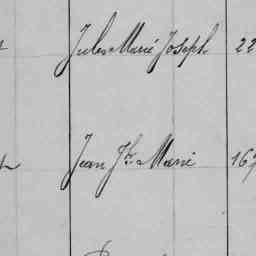 Jules Marie Joseph 22
Jean Jh Marie 167